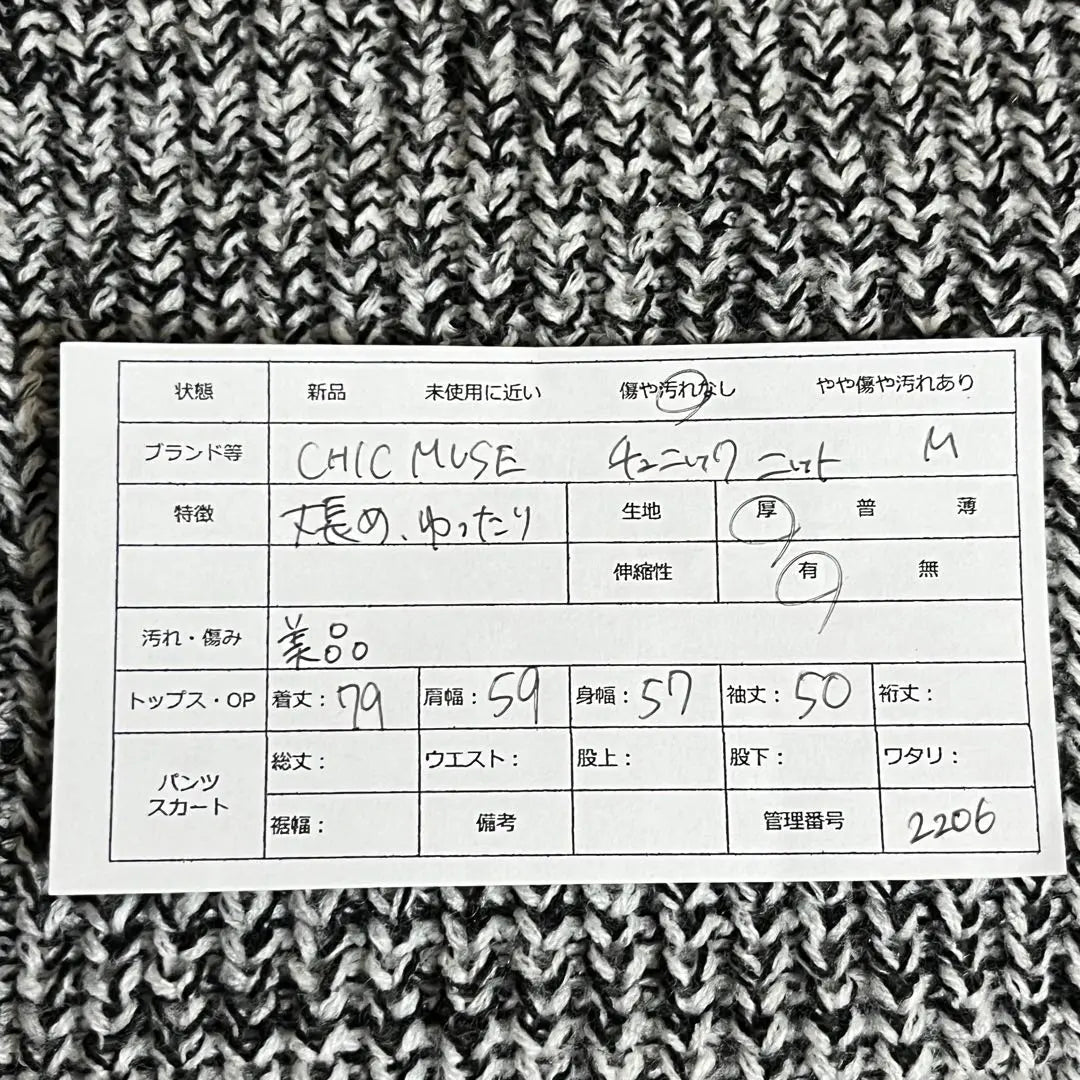 状態 新品 未使用に近い 傷や汚れなし やや傷や汚れあり
ブランド等 CHIC MUSE チュニック ニット M
特徴 丈長め、ゆったり 生地 厚 普 薄
伸縮性 有 無
汚れ・傷み 美品
トップス・OP 着丈：79 肩幅：59 身幅：57 袖丈：50 裄丈：
パンツ スカート 総丈： ウエスト： 股上： 股下： ワタリ：
裾幅： 備考 管理番号 2206